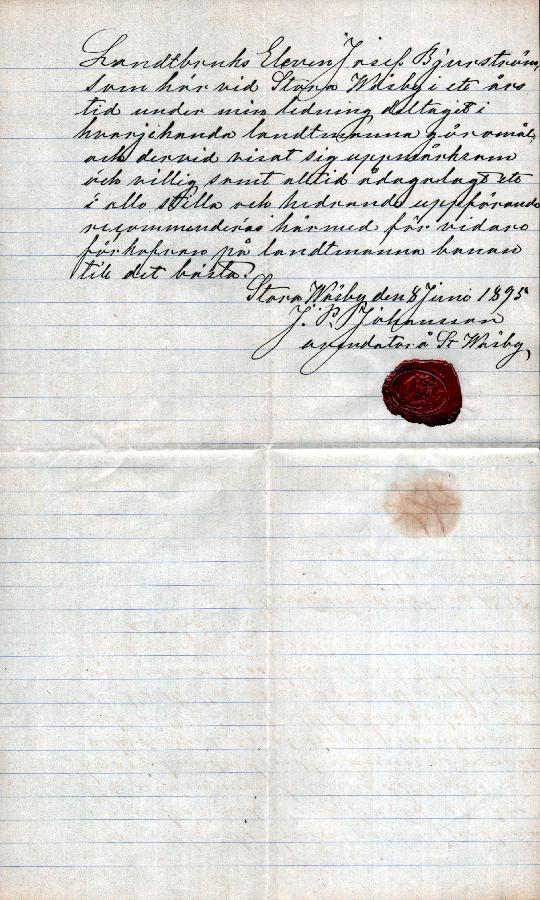 Landtbruks Eleven Josef Bjurström,
som här vid Stora Wäsby i ett års
tid under min ledning deltagit i
hvarjehanda landtmanna göromål,
och dervid visat sig uppmärksam
och villig samt alltid ådagalagt ett
i allo stilla och hedrande uppförande
recommenderas härmed för vidare
förkofran på landtmanna banan
till det bästa.
Stora Wäsby den 8 Juni 1895
J. P. Johansson
arendator å St Wäsby